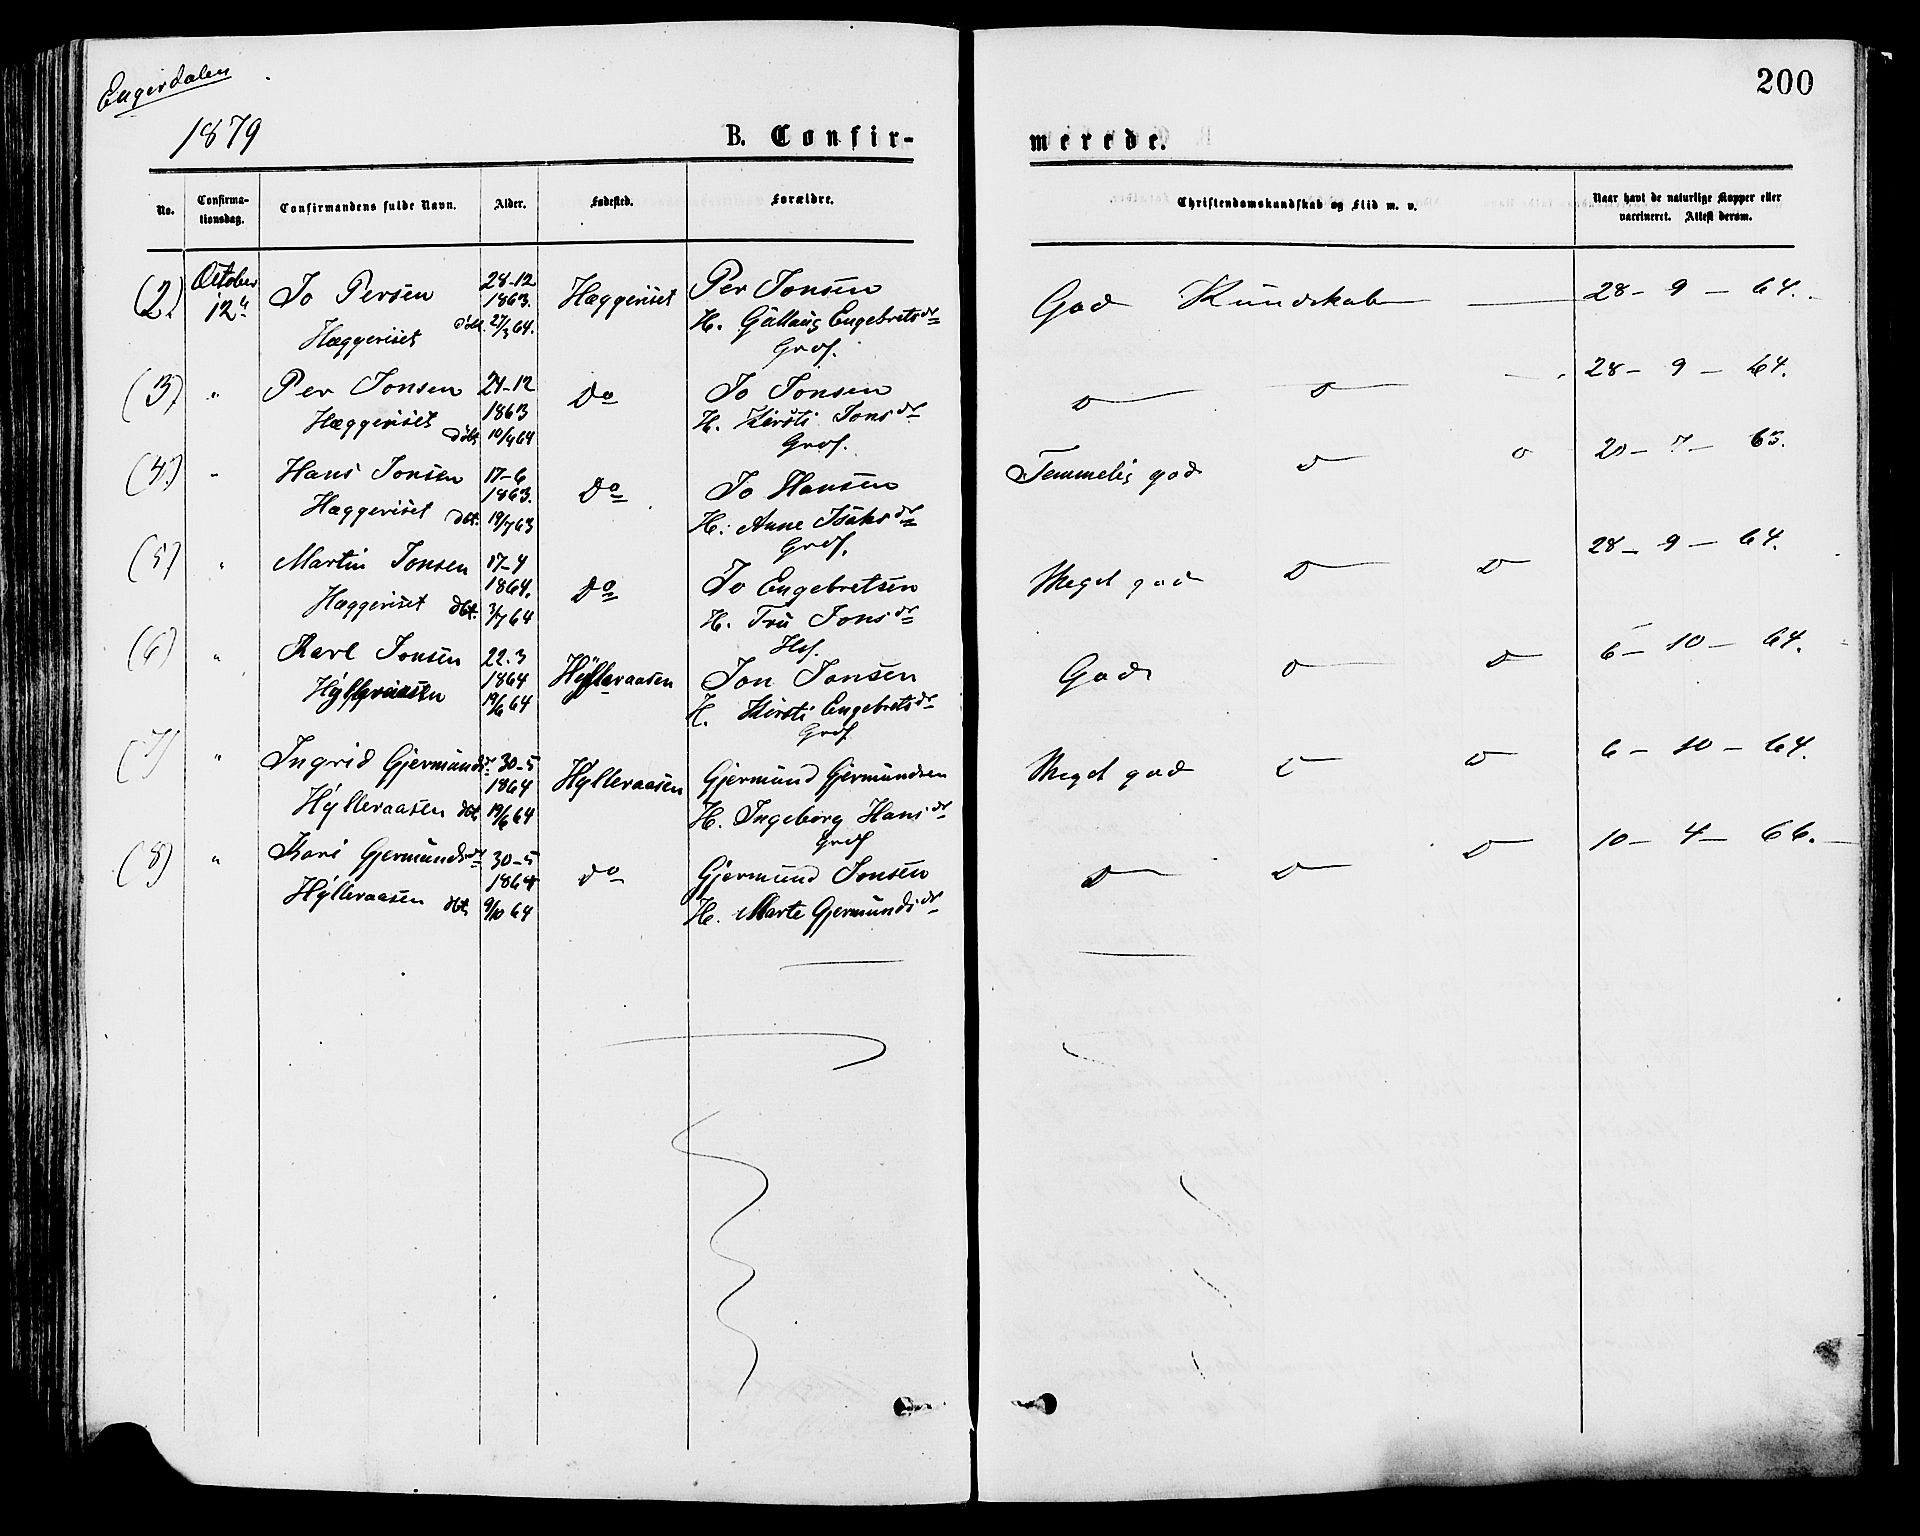 Engerdalen
200
1879
B. Confir- merede.
No. Confirma-tionsdag. Confirmandens fulde Navn. Alder. Fødested. Forældre. Christendomskundskab og Flid m. v. Naar havt de naturlige Kopper eller vaccineret. Attest derom.
(2) October Jo Persen 28-12 Hæggeriset Per Jonsen God Kundskab — 28 - 9 - 64.
12" 1863. H. Gullaug Engebretsdr
Hæggeriset døbt. 27/3 64. Grdf.
(3) " Per Jonsen 24-12 Do Jo Jonsen D D 28 - 9 - 64.
Hæggeriset 1863 H. Kirsti Jonsdr
døbt 10/4 64 Grdf.
(4) " Hans Jonsen 17-6 Do Jo Hansen Temmelig god D o 20 - 7 - 65.
Hæggeriset 1863. H. Anne Isaksdr
dbt. 19/7 63 Grdf.
(5) " Martin Jonsen 17-4 Do Jo Engebretsen Meget god D D 28 - 9 - 64.
Hæggeriset 1864. H. Tru Jonsdr
dbt. 3/7 64 Hsf.
(6) " Karl Jonsen 22.3 Hylleraasen Jon Jonsen God D D 6 - 10 - 64.
Hylleraasen 1864 H. Kirsti Engebretsdr
19/6 64 Grdf
(7) " Ingrid Gjermundsdr 30-5 Hylleraasen Gjermund Gjermundsen Meget god D D 6 - 10 - 64.
Hylleraasen 1864 H. Ingeborg Hansdr
dbt 19/6 64 Grdf
(8) " Kari Gjermundsdr 30-5 do Gjermund Jonsen D D D 10 - 4 - 66.
Hylleraasen 1864 H. Marte Gjermundsdr
dbt 9/10 64